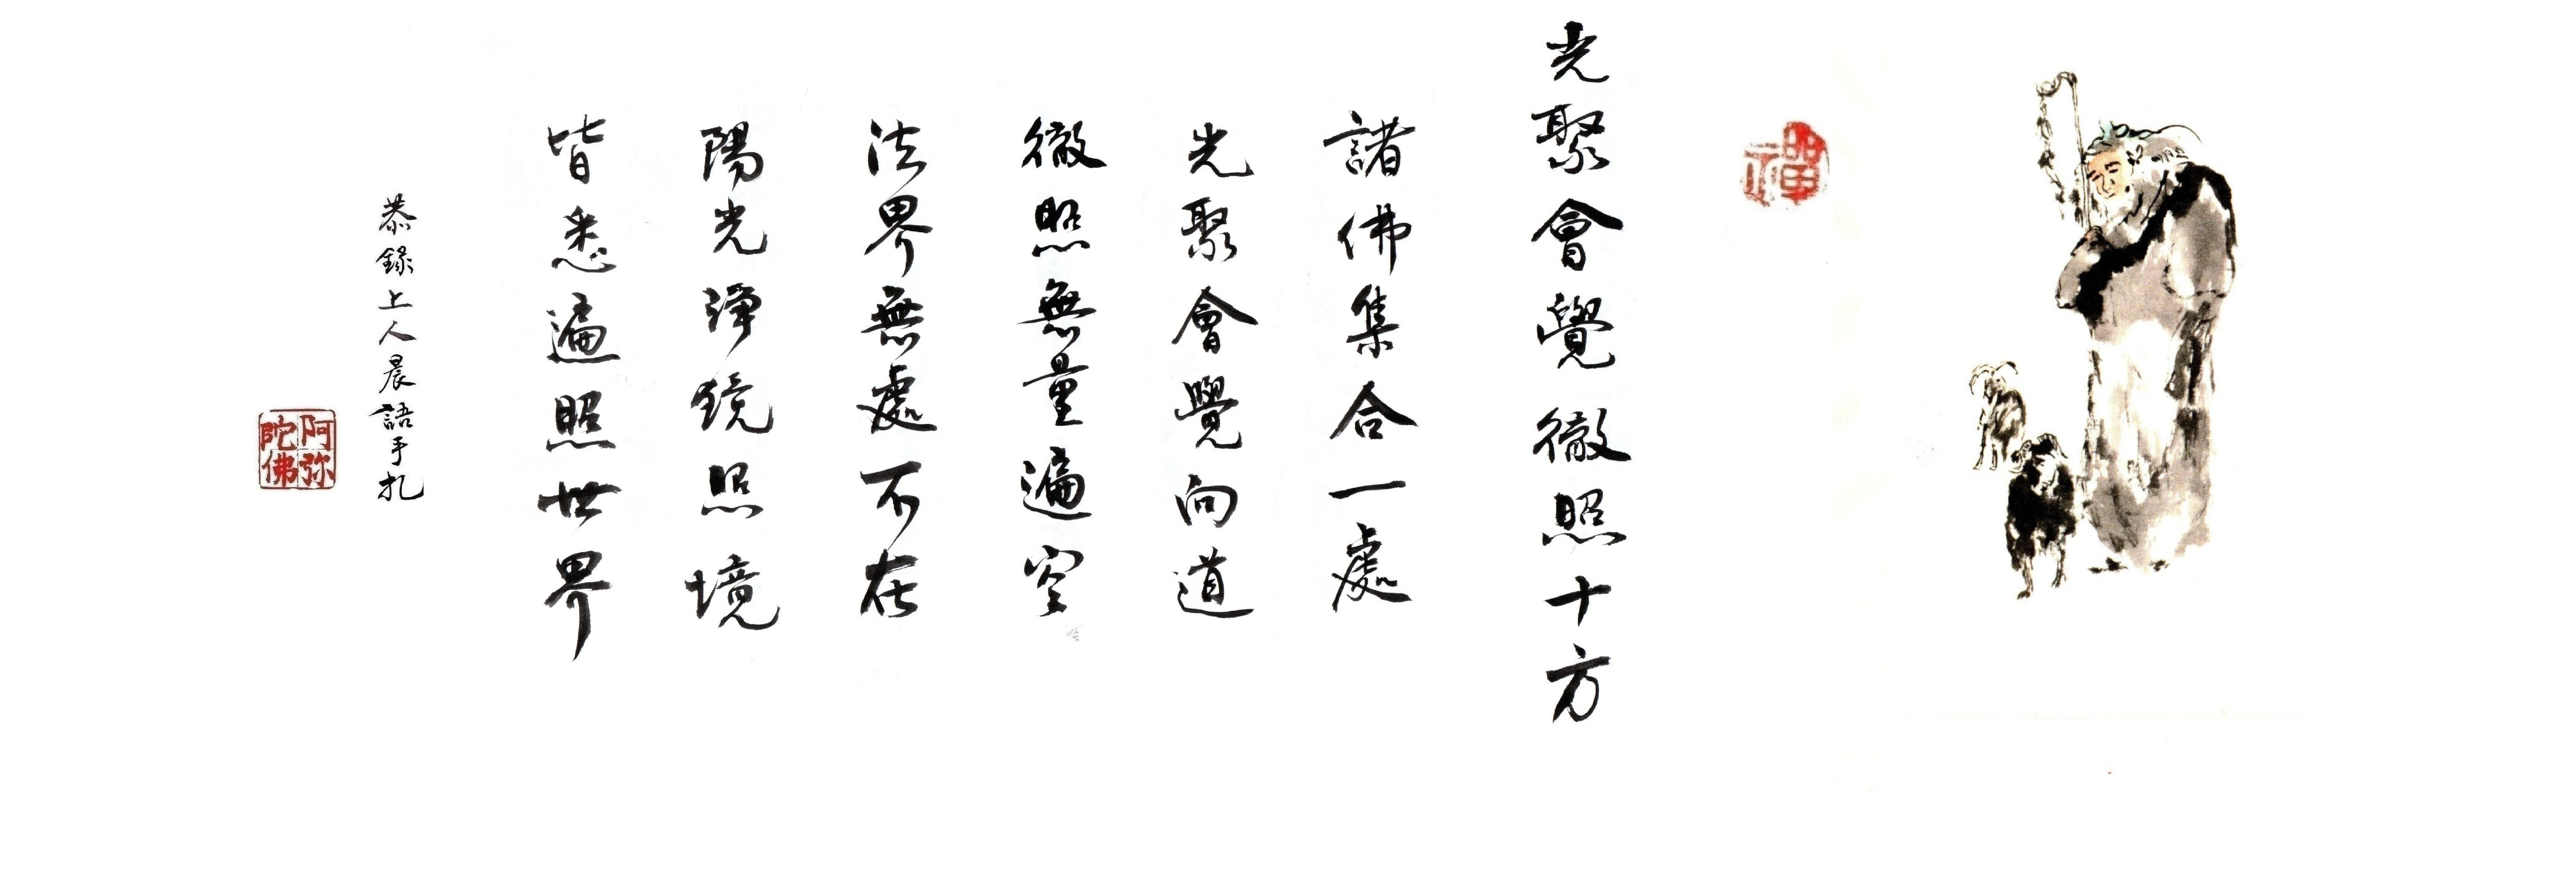 禪
光聚會覺徹照十方
諸佛集合一處
光聚會覺向道
徹照無量遍空
法界無處不在
陽光淨鏡照境
皆悉遍照世界
恭錄上人晨語手札
阿弥
陀佛